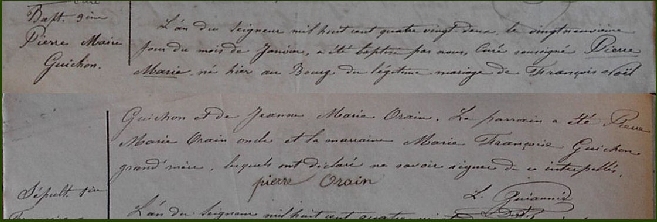 Bapt. 9ème
Pierre Marie
Guichon.
L'an du Seigneur mil huit cent quatre vingt deux, le vingt neuvième
jour du mois de Janvier, a été baptisé par nous, Curé soussigné Pierre
Marie, né hier au Bourg du légitime mariage de François Noël
Guichon et de Jeanne Marie Orain. Le parrain a été Pierre
Marie Orain oncle et la marraine Marie Françoise Guichon
grand'mère, lesquels ont déclaré ne savoir signer de ce interpellés.
pierre Orain
Sépult. 1ère
L'an du Seigneur mil huit cent quatre